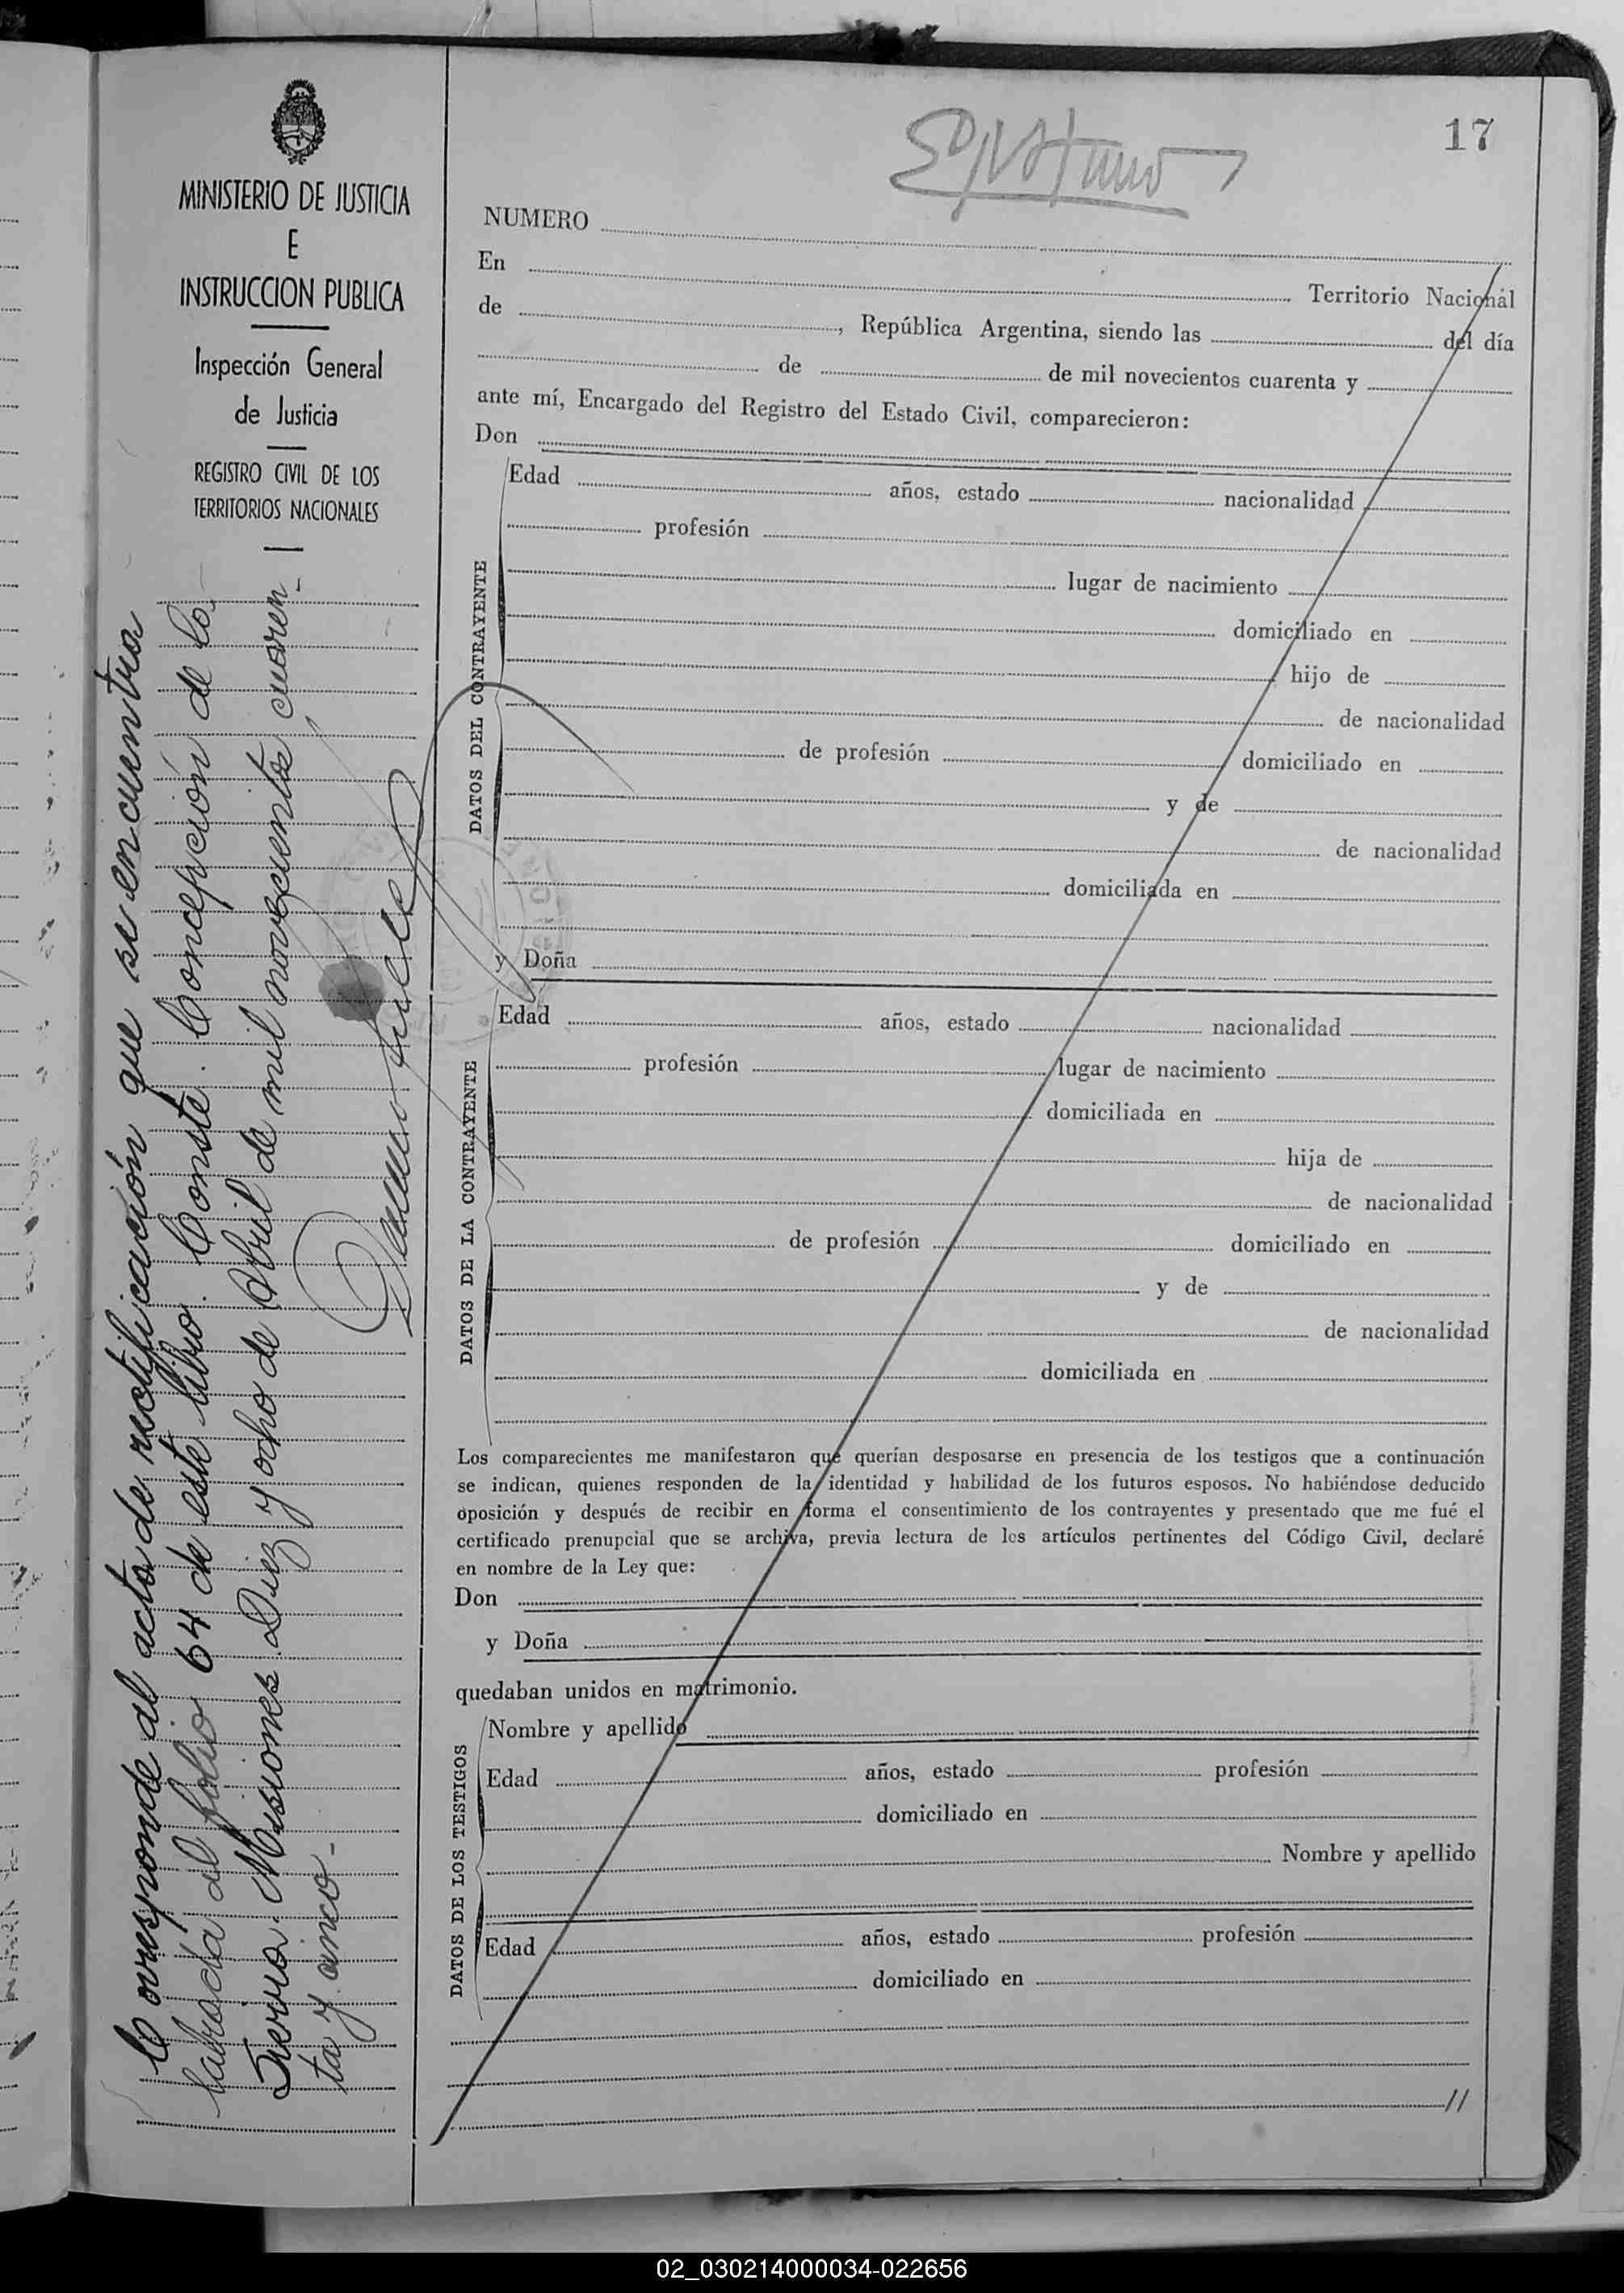 17
MINISTERIO DE JUSTICIA
E
INSTRUCCION PUBLICA
Inspección General
de Justicia
REGISTRO CIVIL DE LOS
TERRITORIOS NACIONALES
Corresponde al acta de rectificación que se encuentra
labrada al folio 64 de este libro. Conste. Concepción de la
Sierra. Misiones. Diez y ocho de Abril de mil novecientos cuaren-
ta y cinco-
NUMERO
En Territorio Nacional
de , República Argentina, siendo las del día
de de mil novecientos cuarenta y
ante mí, Encargado del Registro del Estado Civil, comparecieron:
Don
DATOS DEL CONTRAYENTE
Edad años, estado nacionalidad
profesión
lugar de nacimiento
domiciliado en
hijo de
de nacionalidad
de profesión domiciliado en
y de
de nacionalidad
domiciliada en
y Doña
DATOS DE LA CONTRAYENTE
Edad años, estado nacionalidad
profesión lugar de nacimiento
domiciliada en
hija de
de nacionalidad
de profesión domiciliado en
y de
de nacionalidad
domiciliada en
Los comparecientes me manifestaron que querían desposarse en presencia de los testigos que a continuación
se indican, quienes responden de la identidad y habilidad de los futuros esposos. No habiéndose deducido
oposición y después de recibir en forma el consentimiento de los contrayentes y presentado que me fué el
certificado prenupcial que se archiva, previa lectura de los artículos pertinentes del Código Civil, declaré
en nombre de la Ley que:
Don
y Doña
quedaban unidos en matrimonio.
DATOS DE LOS TESTIGOS
Nombre y apellido
Edad años, estado profesión
domiciliado en
Nombre y apellido
Edad años, estado profesión
domiciliado en
//
02_030214000034-022656